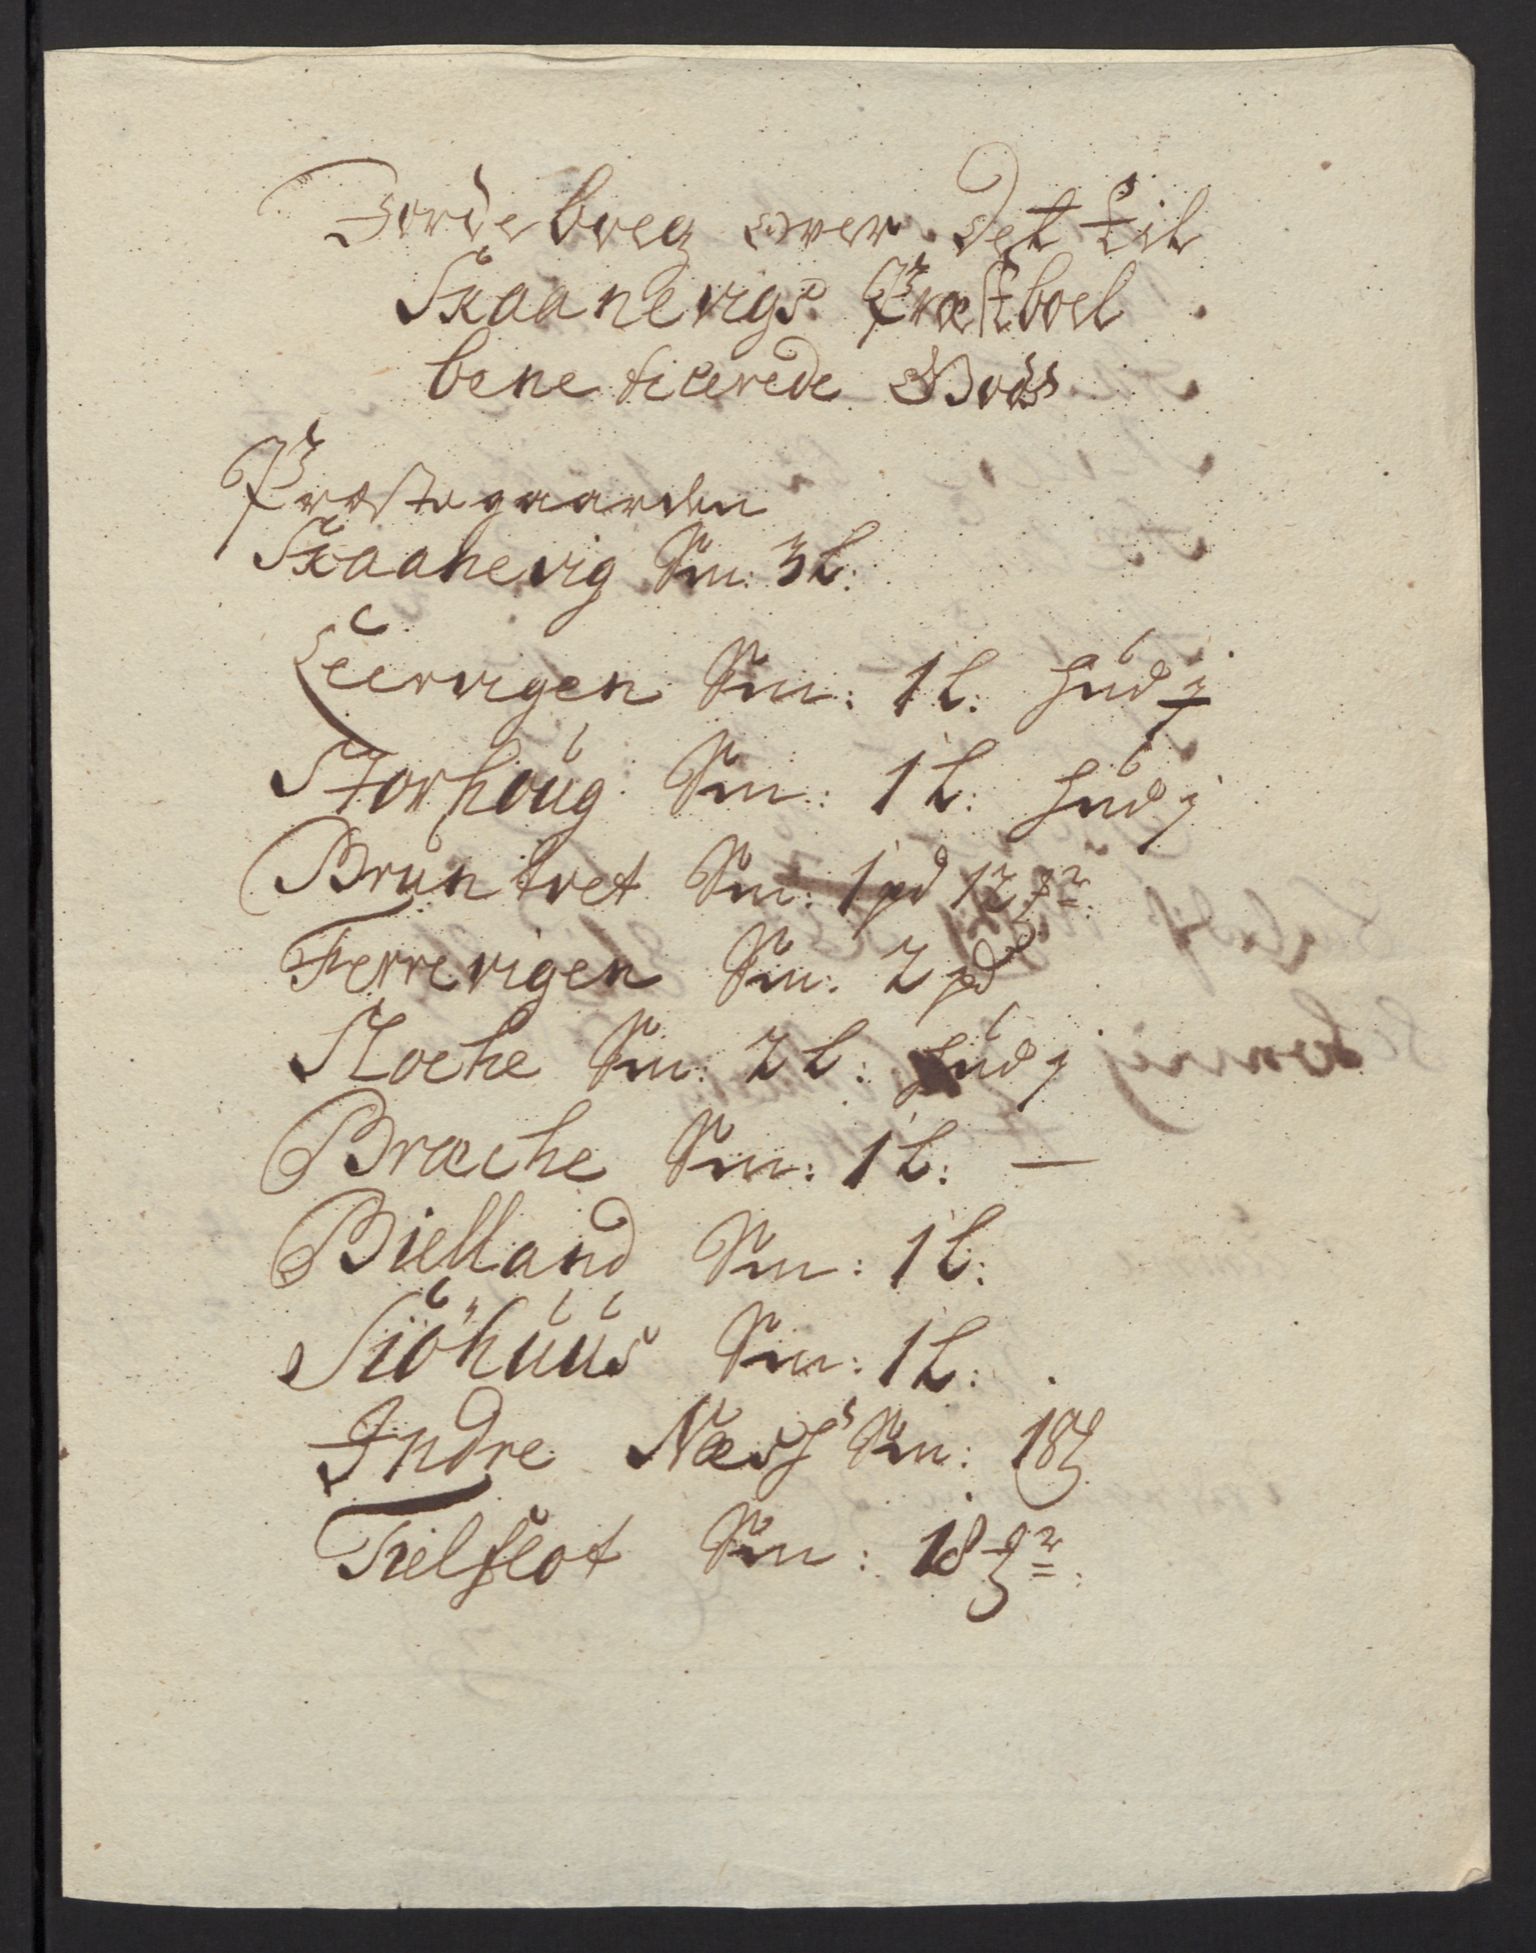 Jordebog over Det til
Skaanevigs Præstboel
beneficerede Gods
Præstegaarden
Skaanevig Sm: 3 L:
Leervigen Sm: 1 L: Hud j
Storhoug Sm: 1 L: Hud j
Bruntvet Sm: 1 pd 12
Ferrevigen Sm: 2 pd
Stoche Sm: 2 L: Hud j
Bræche Sm: 1 L: —
Bielland Sm: 1 L:
Siöhuus Sm: 1 L:
Indre Næss Sm: 18
Tielflot Sm: 18